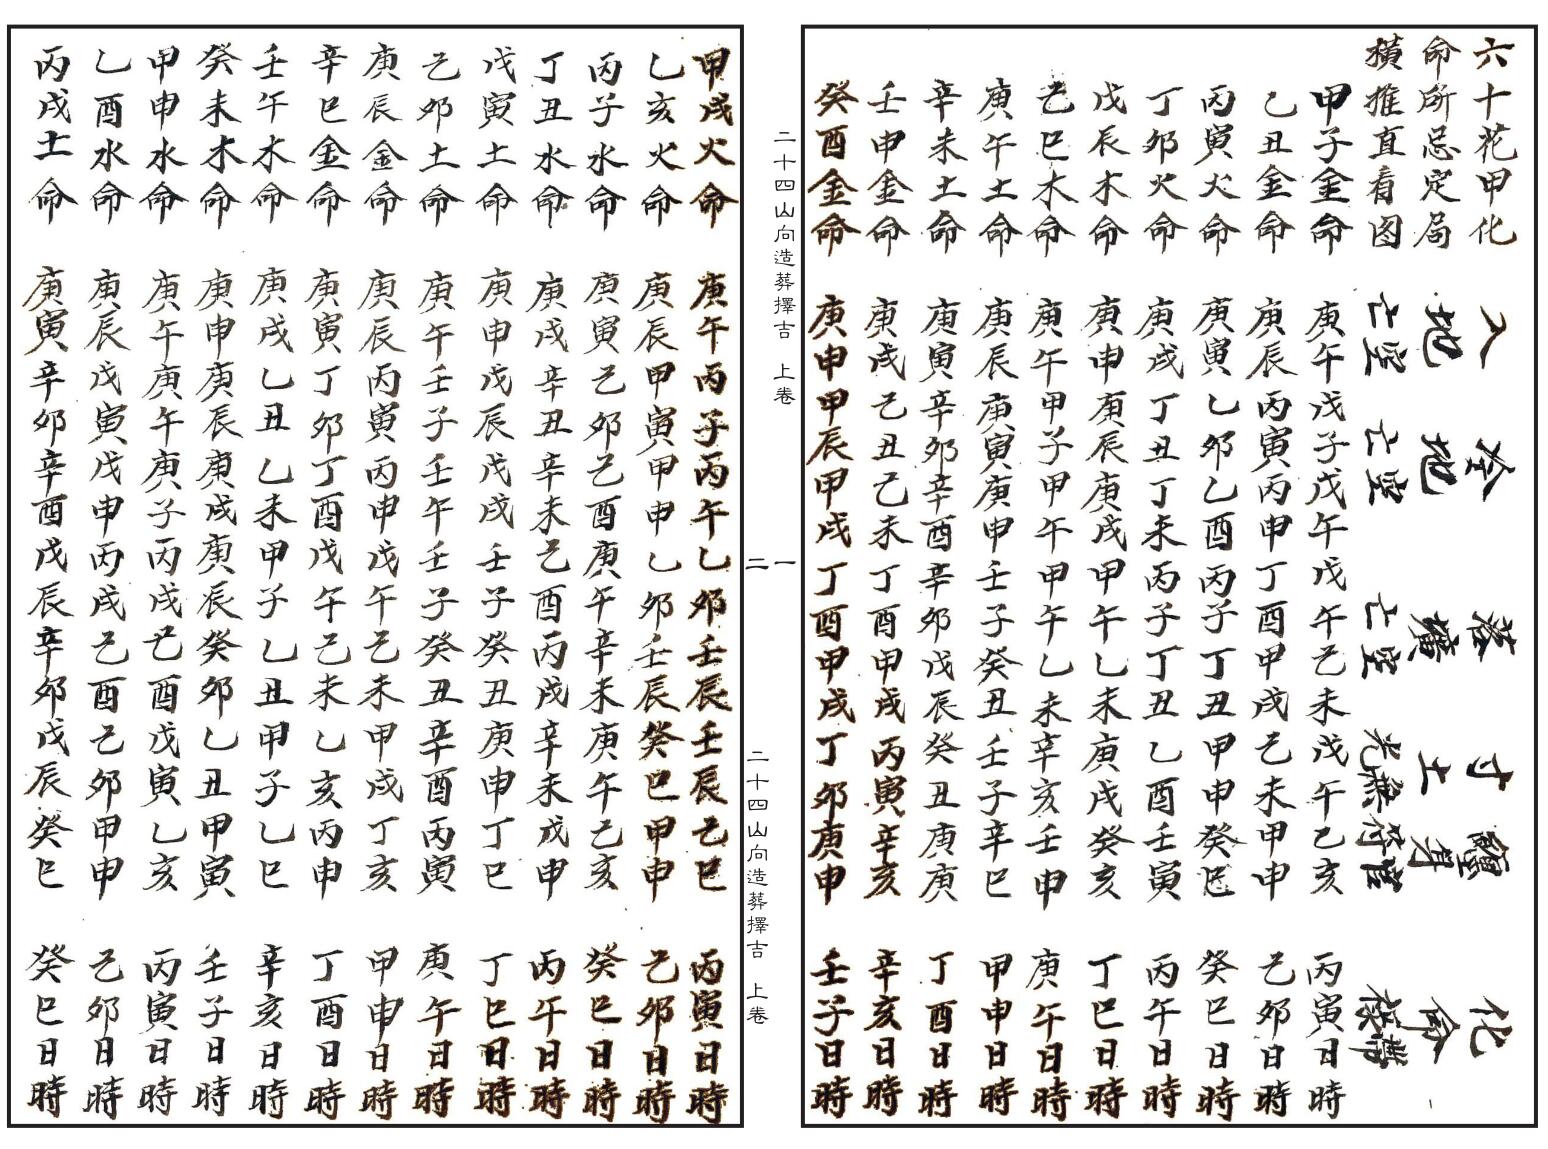 六十花甲化
命所忌定局
橫推直看图
入地空亡
冷地空亡
落壙空亡
寸土無光
化命
甲子金命 庚午戊子戊午戊午己未戊午己亥 丙寅日時
乙丑金命 庚辰丙寅丙申丁酉甲戌己未甲申 己卯日時
丙寅火命 庚寅乙卯乙酉丙子丁丑甲申癸巳 癸巳日時
丁卯火命 庚戌丁丑丁未丙子丁丑乙酉壬寅 丙午日時
戊辰木命 庚申庚辰庚戌甲午乙未庚戌癸亥 丁巳日時
己巳木命 庚午甲子甲午甲午乙未辛亥壬申 庚午日時
庚午土命 庚辰庚寅庚申壬子癸丑壬子辛巳 甲申日時
辛未土命 庚寅辛卯辛酉辛卯戊辰癸丑庚庚 丁酉日時
壬申金命 庚戌己丑己未丁酉甲戌丙寅辛亥 辛亥日時
癸酉金命 庚申甲辰甲戌丁酉甲戌丁卯庚申 壬子日時
二十四山向造葬擇吉 上卷 一
二 二十四山向造葬擇吉 上卷
甲戌火命 庚午丙子丙午乙卯壬辰壬辰己巳 丙寅日時
乙亥火命 庚辰甲寅甲申乙卯壬辰癸巳甲申 己卯日時
丙子水命 庚寅己卯己酉庚午辛未庚午己亥 癸巳日時
丁丑水命 庚戌辛丑辛未己酉丙戌辛未戊申 丙午日時
戊寅土命 庚申戊辰戊戌壬子癸丑庚申丁巳 丁巳日時
己卯土命 庚午壬子壬午壬子癸丑辛酉丙寅 庚午日時
庚辰金命 庚辰丙寅丙申戊午己未甲戌丁亥 甲申日時
辛巳金命 庚寅丁卯丁酉戊午己未乙亥丙申 丁酉日時
壬午木命 庚戌乙丑乙未甲子乙丑甲子乙巳 辛亥日時
癸未木命 庚申庚辰庚戌庚辰癸卯乙丑甲寅 壬子日時
甲申水命 庚午庚午庚子丙戌己酉戊寅乙亥 丙寅日時
乙酉水命 庚辰戊寅戊申丙戌己酉己卯甲申 己卯日時
丙戌土命 庚寅辛卯辛酉戊辰辛卯戊辰癸巳 癸巳日時